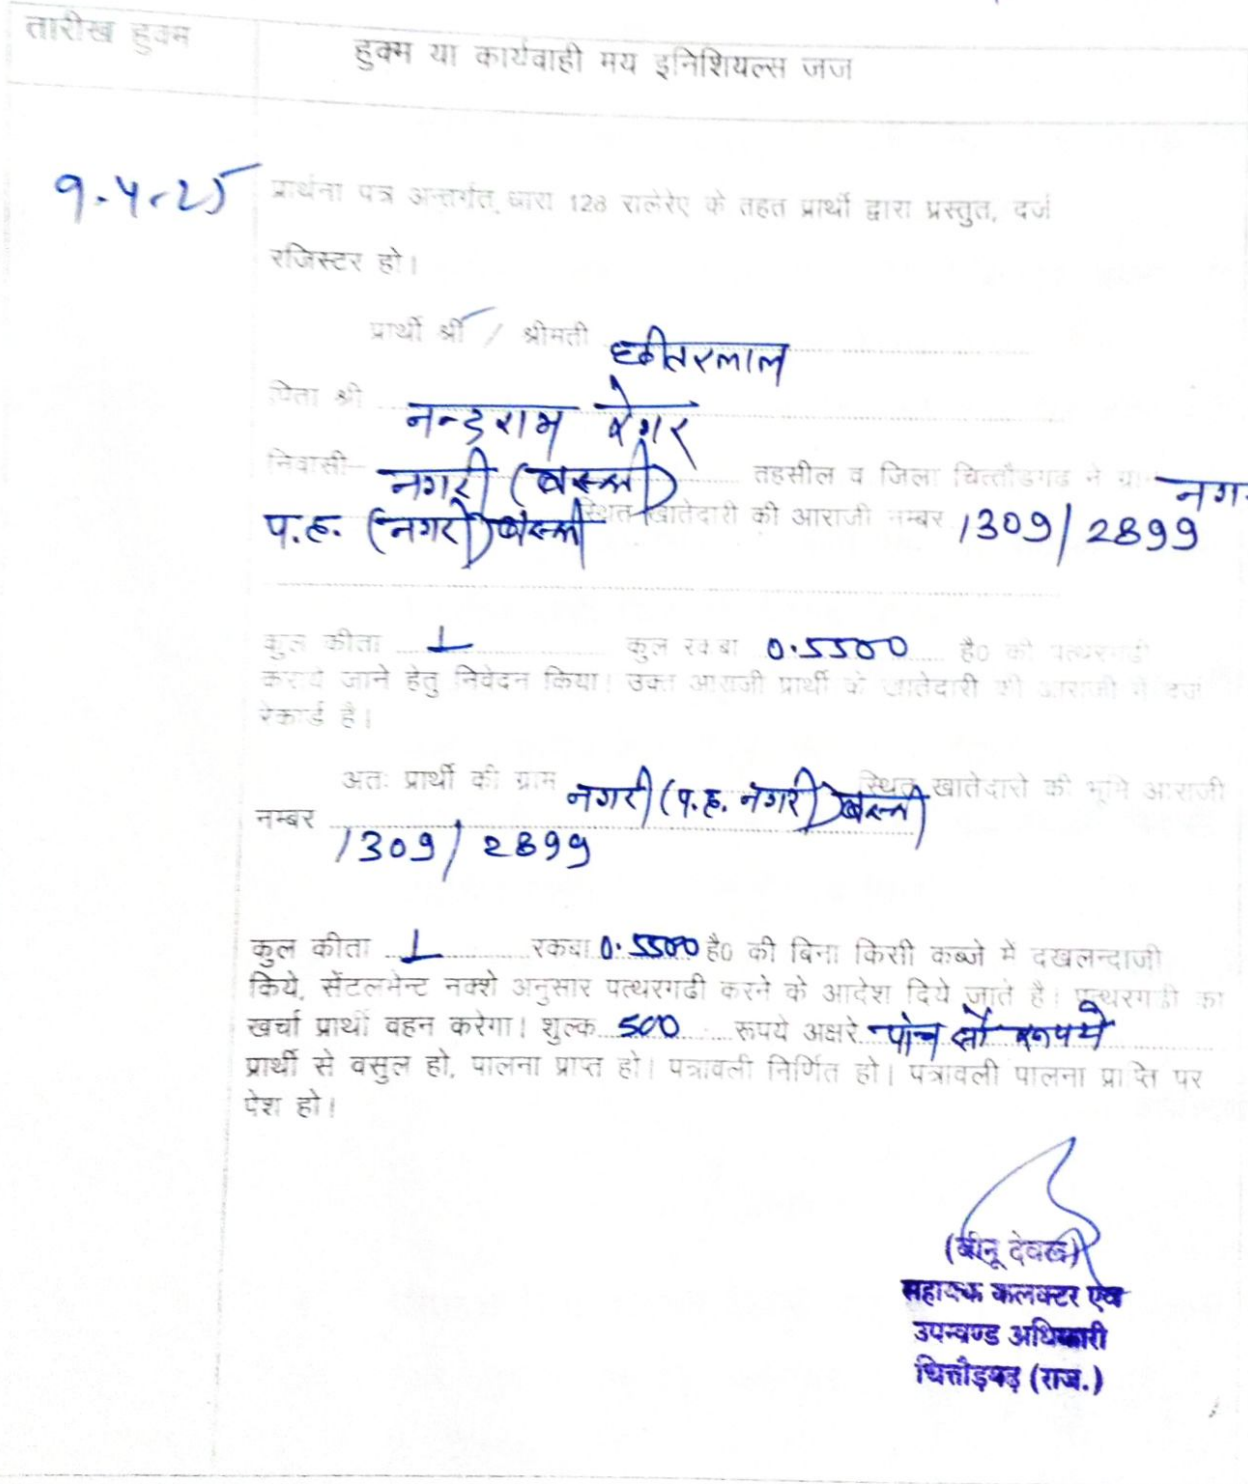 तारीख हुक्म
हुक्म या कार्यवाही मय इनिशियल्स जज
9-4-25
प्रार्थना पत्र अन्तर्गत धारा 128 रालेरेए के तहत प्रार्थी द्वारा प्रस्तुत, दर्ज
रजिस्टर हो।
प्रार्थी श्री / श्रीमती छीतरलाल
पिता श्री नन्दराम रेगर
निवासी नगरी (बस्सी) तहसील व जिला चित्तौडगढ ने ग्रा नग
प.ह. (नगरी) बस्सी स्थित खातेदारी की आराजी नम्बर 1309/2899
कुल कीता 1 कुल रकबा 0.5500 है0 की पत्थरगढी
कराये जाने हेतु निवेदन किया। उक्त आराजी प्रार्थी के खातेदारी की आराजी में दर्ज
रेकार्ड है।
अतः प्रार्थी की ग्राम नगरी (प.ह. नगरी) बस्सी स्थित खातेदारी की भूमि आराजी
नम्बर 1309/2899
कुल कीता 1 रकबा 0.5500 है0 की बिना किसी कब्जे में दखलन्दाजी
किये, सेंटलमेन्ट नक्शे अनुसार पत्थरगढी करने के आदेश दिये जाते है। पत्थरगढी का
खर्चा प्रार्थी वहन करेगा। शुल्क 500 रूपये अक्षरे पांच सौ रूपये
प्रार्थी से वसुल हो, पालना प्राप्त हो। पत्रावली निर्णित हो। पत्रावली पालना प्राप्ति पर
पेश हो।
(बीनू देवल)
सहायक कलक्टर एवं
उपखण्ड अधिकारी
चित्तौड़गढ़ (राज.)